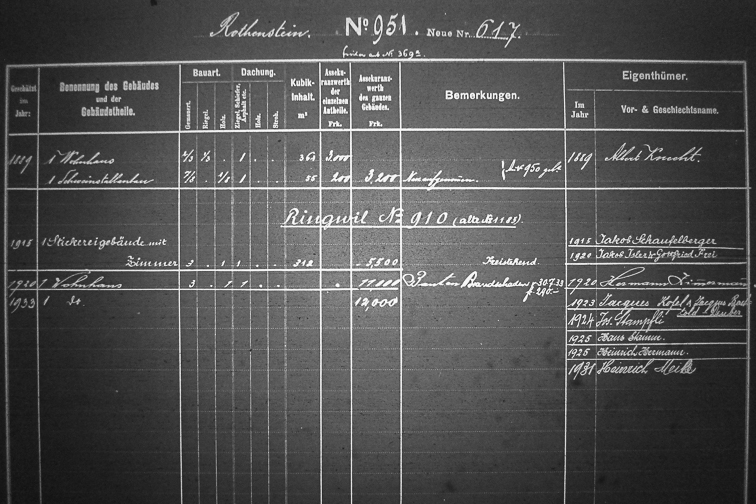 Rothenstein. No 951. Neue Nr. 617.
Geschätzt im Jahr:
Benennung des Gebäudes und der Gebäudetheile.
Bauart.
Gemauert.
Riegel.
Holz.
Dachung.
Ziegel, Schiefer, Asphalt etc.
Holz.
Stroh.
Kubik-Inhalt. m³
Assekuranzwerth der einzelnen Antheile. Frk.
Assekuranzwerth des ganzen Gebäudes. Frk.
Bemerkungen.
Eigenthümer.
Im Jahr
Vor- & Geschlechtsname.
1889 1 Wohnhaus 1 363 3,000 1889 Albert Knecht.
1 Schweinstallanbau 1 200 3,200 Neu aufgenommen
Ringwil No 910 (alte No 1189).
1915 1 Stickereigebäude mit 1915 Jakob Schaufelberger
Zimmer 3 . 1 1 . . 312 . 5,500 Freistehend. 1920 Jakob Isler & Gottfried Frei
1920 1 Wohnhaus 3 . 1 1 . . . 11000 Brandschaden 30.7.33 1920 Hermann Zimermann,
fr. 290.-
1933 1 do. 12,000 1923 Jacques Hofel & Jacques
1924 Js. Stampfli
1925 Hans Stamm.
1925 Heinrich Hermann.
1931 Heinrich Meile